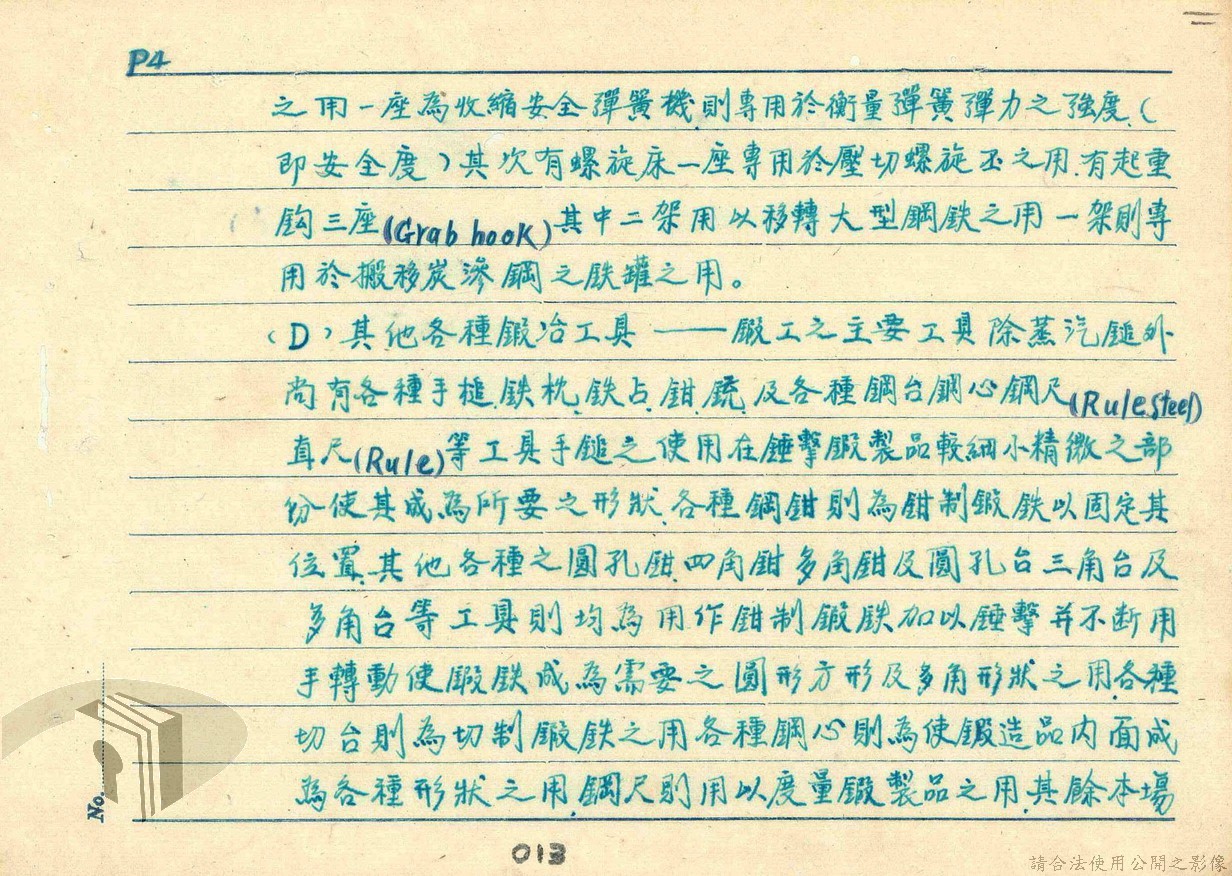 P4
之用一座為收縮安全彈簧機則專用於衡量彈簧彈力之強度.(
即安全度)其次有螺旋床一座專用於壓切螺旋丕之用.有起重
鈎三座(Grab hook)其中二架用以移轉大型鋼鉄之用一架則專
用於搬移炭滲鋼之鉄罐之用。
(D)其他各種鍛冶工具——鍛工之主要工具除蒸汽鎚外
尚有各種手槌.鉄枕.鉄占.鉗.鎊.及各種鋼台鋼心鋼尺(Rule.Steel)
直尺(Rule)等工具手鎚之使用在錘擊鍛製品較細小精微之部
份使其成為所要之形狀.各種鋼鉗則為鉗制鍛鉄以固定其
位置.其他各種之圓孔鉗.四角鉗多角鉗及圓孔台三角台及
多角台等工具則均為用作鉗制鍛鉄加以錘擊并不断用
手轉動使鍛鉄成為需要之圓形方形及多角形狀之用.各種
切台則為切制鍛鉄之用各種鋼心則為使鍛造品内面成
為各種形狀之用.鋼尺則用以度量鍛製品之用.其餘本場
No.
013
請合法使用公開之影像